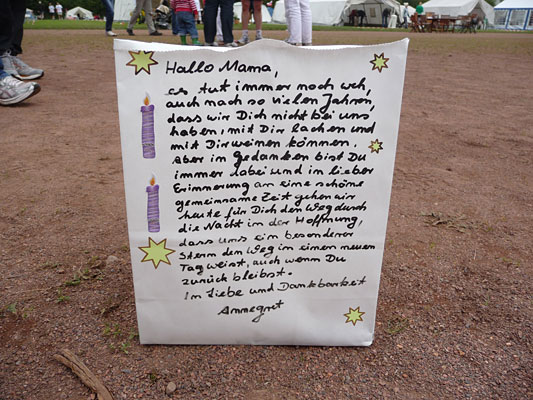 Hallo Mama,
es tut immer noch weh,
auch nach so vielen Jahren,
dass wir Dich nicht bei uns
haben, mit Dir lachen und
mit Dir weinen können.
Aber in Gedanken bist Du
immer dabei und in lieber
Erinnerung an eine schöne
gemeinsame Zeit gehen wir
heute für Dich den Weg durch
die Nacht in der Hoffnung,
dass uns ein besonderer
Stern den Weg in einen neuen
Tag weist, auch wenn Du
zurück bleibst.
In Liebe und Dankbarkeit
Annegret